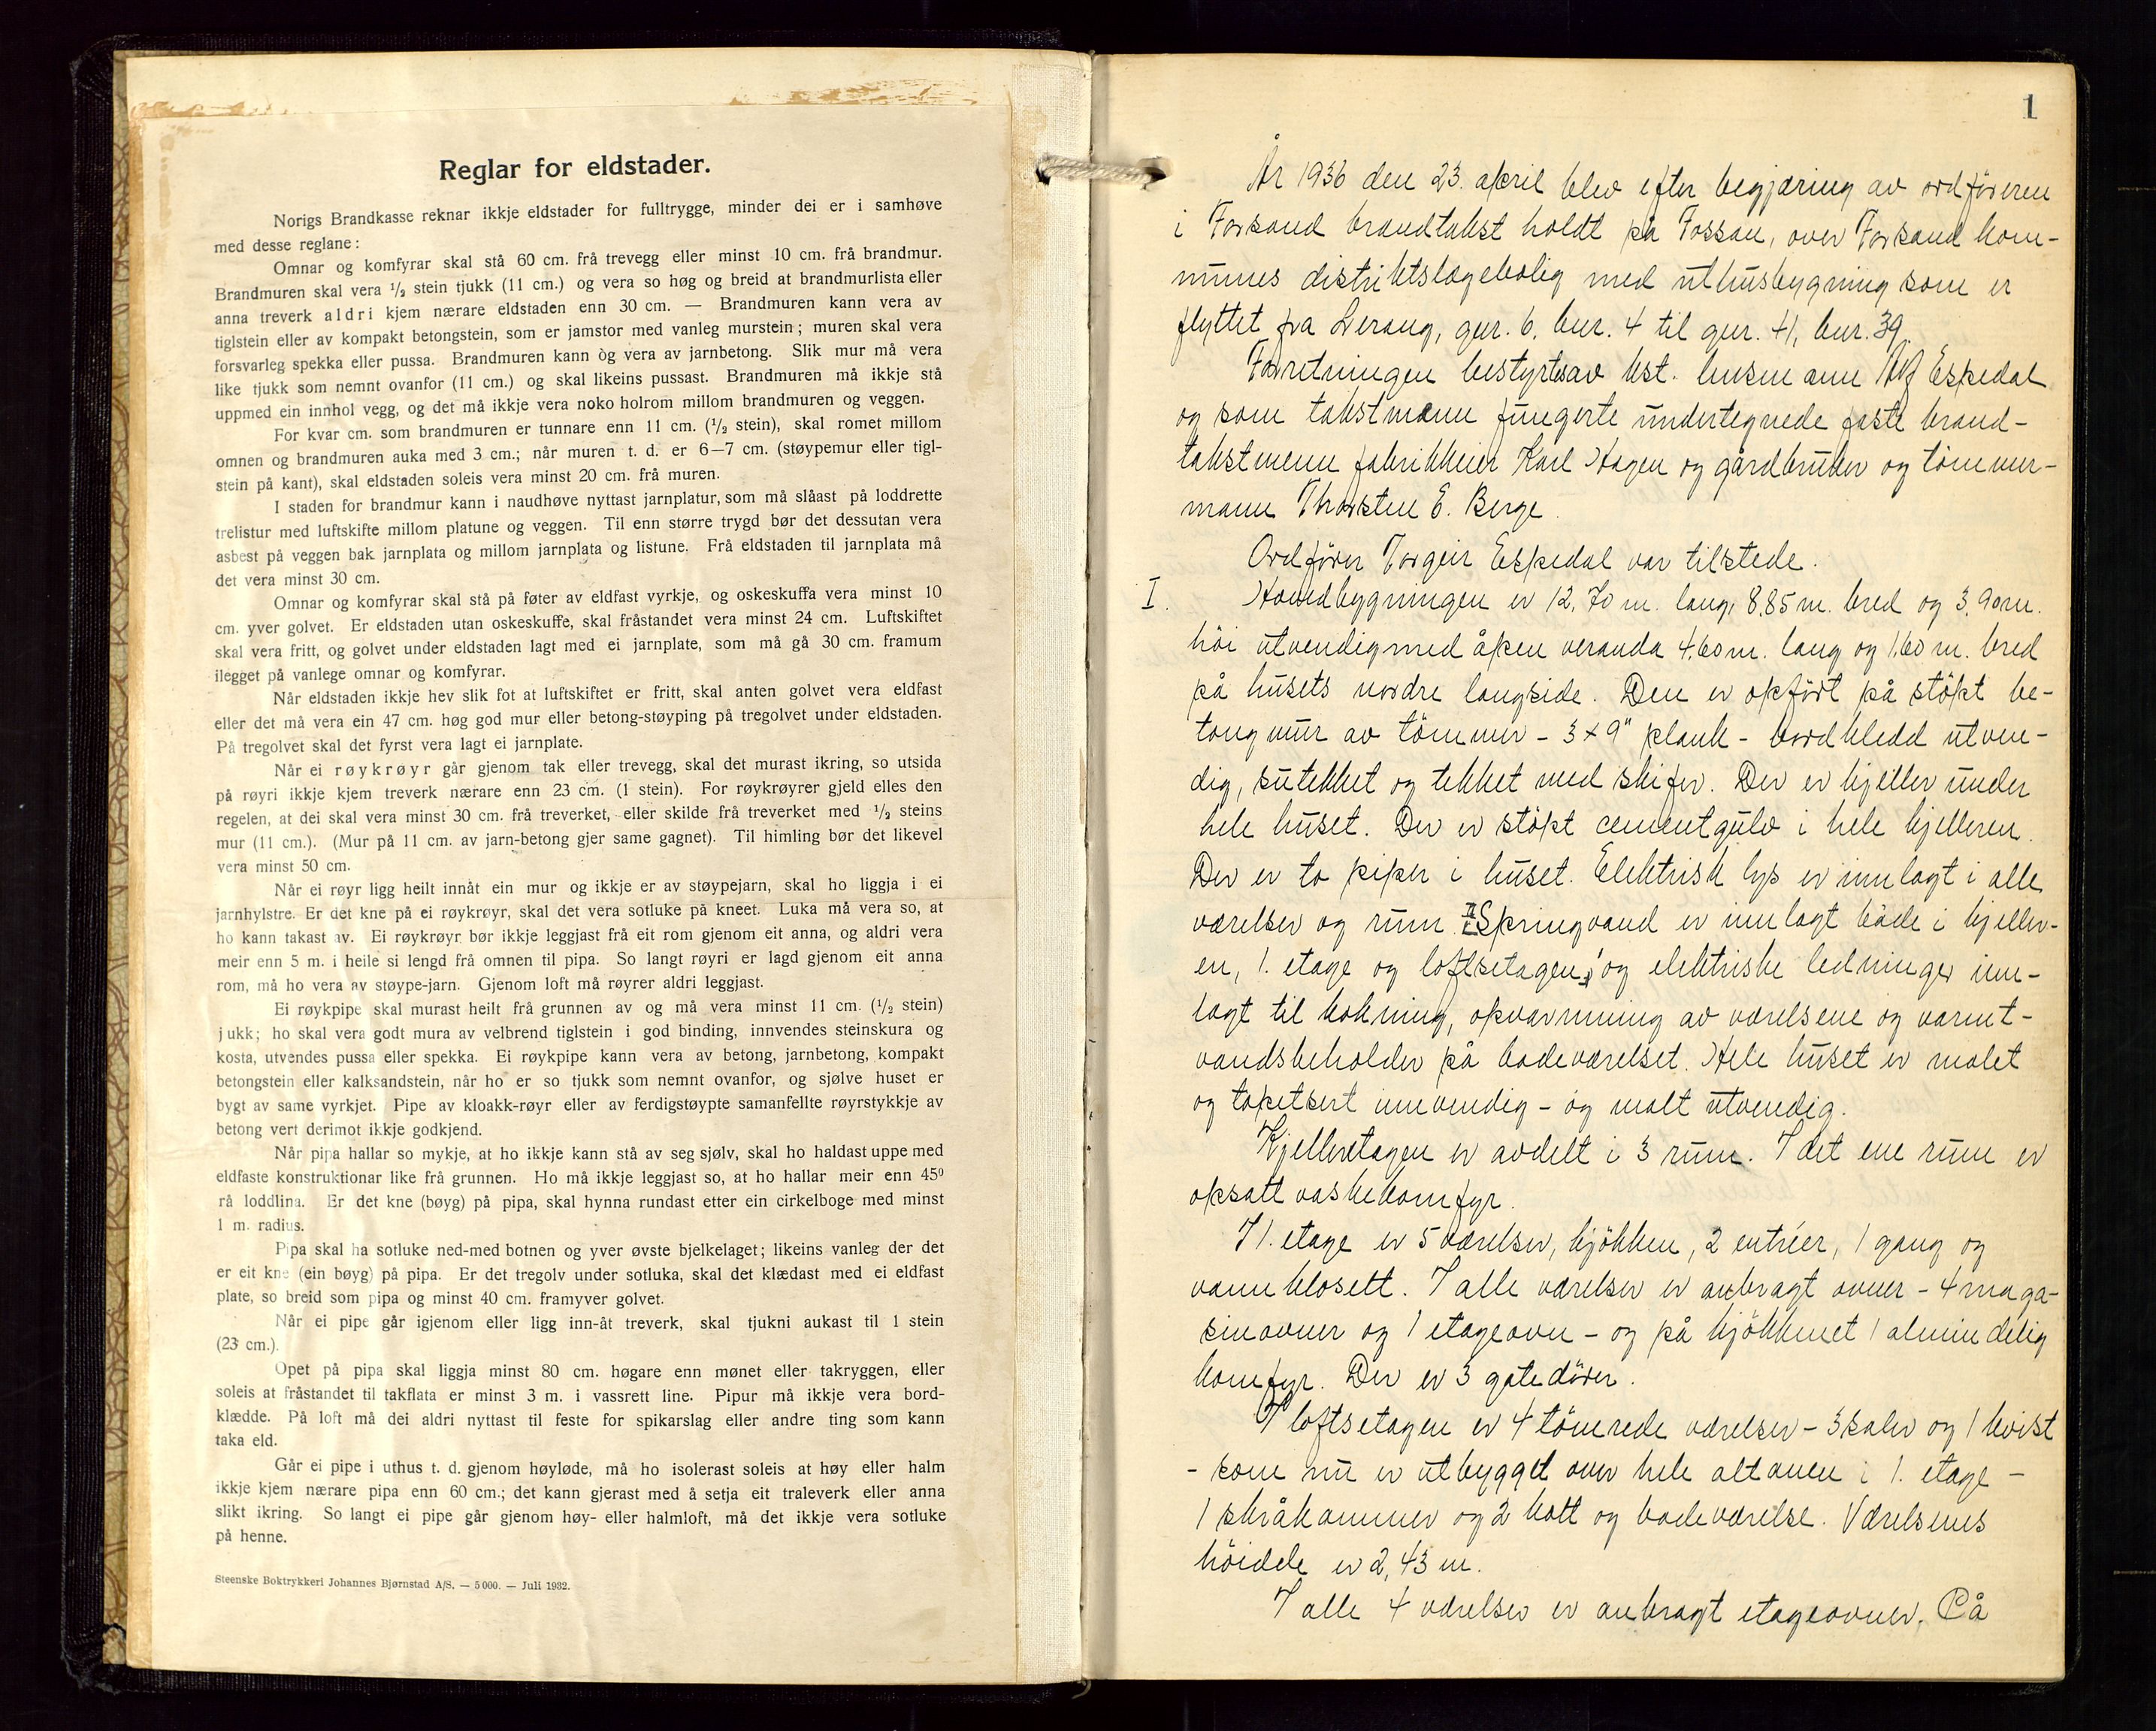 Reglar for eldstader.
Norigs Brandkasse reknar ikkje eldstader for fulltrygge, minder dei er i samhøve
med desse reglane:
Omnar og komfyrar skal stå 60 cm. frå trevegg eller minst 10 cm. frå brandmur.
Brandmuren skal vera ½ stein tjukk (11 cm.) og vera so høg og breid at brandmurlista eller
anna treverk aldri kjem nærare eldstaden enn 30 cm. — Brandmuren kann vera av
tiglstein eller av kompakt betongstein, som er jamstor med vanleg murstein; muren skal vera
forsvarleg spekka eller pussa. Brandmuren kann òg vera av jarnbetong. Slik mur må vera
like tjukk som nemnt ovanfor (11 cm.) og skal likeins pussast. Brandmuren må ikkje stå
uppmed ein innhol vegg, og det må ikkje vera noko holrom millom brandmuren og veggen.
For kvar cm. som brandmuren er tunnare enn 11 cm. (½ stein), skal romet millom
omnen og brandmuren auka med 3 cm.; når muren t. d. er 6—7 cm. (støypemur eller tigl-
stein på kant), skal eldstaden soleis vera minst 20 cm. frå muren.
I staden for brandmur kann i naudhøve nyttast jarnplatur, som må slåast på loddrette
trelistur med luftskifte millom platune og veggen. Til enn større trygd bør det dessutan vera
asbest på veggen bak jarnplata og millom jarnplata og listune. Frå eldstaden til jarnplata må
det vera minst 30 cm.
Omnar og komfyrar skal stå på føter av eldfast vyrkje, og oskeskuffa vera minst 10
cm. yver golvet. Er eldstaden utan oskeskuffe, skal fråstandet vera minst 24 cm. Luftskiftet
skal vera fritt, og golvet under eldstaden lagt med ei jarnplate, som må gå 30 cm. framum
ilegget på vanlege omnar og komfyrar.
Når eldstaden ikkje hev slik fot at luftskiftet er fritt, skal anten golvet vera eldfast
eller det må vera ein 47 cm. høg god mur eller betong-støyping på tregolvet under eldstaden.
På tregolvet skal det fyrst vera lagt ei jarnplate.
Når ei røykrøyr går gjenom tak eller trevegg, skal det murast ikring, so utsida
på røyri ikkje kjem treverk nærare enn 23 cm. (1 stein). For røykrøyrer gjeld elles den
regelen, at dei skal vera minst 30 cm. frå treverket, eller skilde frå treverket med ½ steins
mur (11 cm.). (Mur på 11 cm. av jarn-betong gjer same gagnet). Til himling bør det likevel
vera minst 50 cm.
Når ei røyr ligg heilt innåt ein mur og ikkje er av støypejarn, skal ho liggja i ei
jarnhylstre. Er det kne på ei røykrøyr, skal det vera sotluke på kneet. Luka må vera so, at
ho kann takast av. Ei røykrøyr bør ikkje leggjast frå eit rom gjenom eit anna, og aldri vera
meir enn 5 m. i heile si lengd frå omnen til pipa. So langt røyri er lagd gjenom eit anna
rom, må ho vera av støype-jarn. Gjenom loft må røyrer aldri leggjast.
Ei røykpipe skal murast heilt frå grunnen av og må vera minst 11 cm. (½ stein)
jukk; ho skal vera godt mura av velbrend tiglstein i god binding, innvendes steinskura og
kosta, utvendes pussa eller spekka. Ei røykpipe kann vera av betong, jarnbetong, kompakt
betongstein eller kalksandstein, når ho er so tjukk som nemnt ovanfor, og sjølve huset er
bygt av same vyrkjet. Pipe av kloakk-røyr eller av ferdigstøypte samanfellte røyrstykkje av
betong vert derimot ikkje godkjend.
Når pipa hallar so mykje, at ho ikkje kann stå av seg sjølv, skal ho haldast uppe med
eldfaste konstruktionar like frå grunnen. Ho må ikkje leggjast so, at ho hallar meir enn 45⁰
rå loddlina. Er det kne (bøyg) på pipa, skal hynna rundast etter ein cirkelboge med minst
1 m. radius.
Pipa skal ha sotluke ned-med botnen og yver øvste bjelkelaget; likeins vanleg der det
er eit kne (ein bøyg) på pipa. Er det tregolv under sotluka, skal det klædast med ei eldfast
plate, so breid som pipa og minst 40 cm. framyver golvet.
Når ei pipe går igjenom eller ligg inn-åt treverk, skal tjukni aukast til 1 stein
(23 cm.).
Opet på pipa skal liggja minst 80 cm. høgare enn mønet eller takryggen, eller
soleis at fråstandet til takflata er minst 3 m. i vassrett line. Pipur må ikkje vera bord-
klædde. På loft må dei aldri nyttast til feste for spikarslag eller andre ting som kann
taka eld.
Går ei pipe i uthus t. d. gjenom høyløde, må ho isolerast soleis at høy eller halm
ikkje kjem nærare pipa enn 60 cm.; det kann gjerast med å setja eit traleverk eller anna
slikt ikring. So langt ei pipe går gjenom høy- eller halmloft, må det ikkje vera sotluke
på henne.
Steenske Boktrykkeri Johannes Bjørnstad A/S. — 5 000. — Juli 1932.
1
År 1936 den 23. april blev efter begjæring av ordföreren
i Forsand brandtakst holdt på Fossan, over Forsand kom-
munes distriktslægebolig med uthusbygning som er
flyttet fra Lerang, gnr. 6. bnr. 4 til gnr. 41, bnr. 39.
Forretningen bestyrtes av kst. lensmann Alf Espedal
og som takstmenn fungerte undertegnede faste brand-
takstmenn fabrikkeier Karl Hagen og gårdbruker og tömmer-
mann Thorsten E. Berge.
Ordförer Torgeir Espedal var tilstede.
I. Hovedbygningen er 12,70 m. lang, 8,85 m. bred og 3,90 m.
höi utvendig med åpen veranda 4,60 m. lang og 1,60 m. bred
på husets nordre langside. Den er opfört på stöpt be-
tongmur av tömmer - 3 x 9" plank - bordkledd utven-
dig, sutekket og tekket med skifer. Der er kjeller under
hele huset. Der er stöpt cementgulv i hele kjelleren.
Der er to piper i huset. Elektrisk lys er innlagt i alle
værelser og rum. Springvand er innlagt både i kjeller-
en, 1. etage og loftsetagen, og elektriske ledninger inn-
lagt til kokning, opvarmning av værelsene og varmt-
vandsbeholder på badeværelset. Hele huset er malet
og tapetsert innvendig - og malt utvendig.
Kjelleretagen er avdelt i 3 rum. I det ene rum er
opsatt vaskekomfyr.
I 1. etage er 5 værelser, kjökken, 2 entréer, 1 gang og
vannklosett. I alle værelser er anbragt ovner - 4 maga-
sinovner og 1 etageovn - og på kjökkenet 1 almindelig
komfyr. Der er 3 gatedörer.
I loftsetagen er 4 tömrede værelser - 3 saler og 1 kvist
- som nu er utbygget over hele altanen i 1. etage -
1 skråkammer og 2 kott og badeværelse. Værelsenes
höidde er 2,43 m.
I alle 4 værelser er anbragt etageovner. På